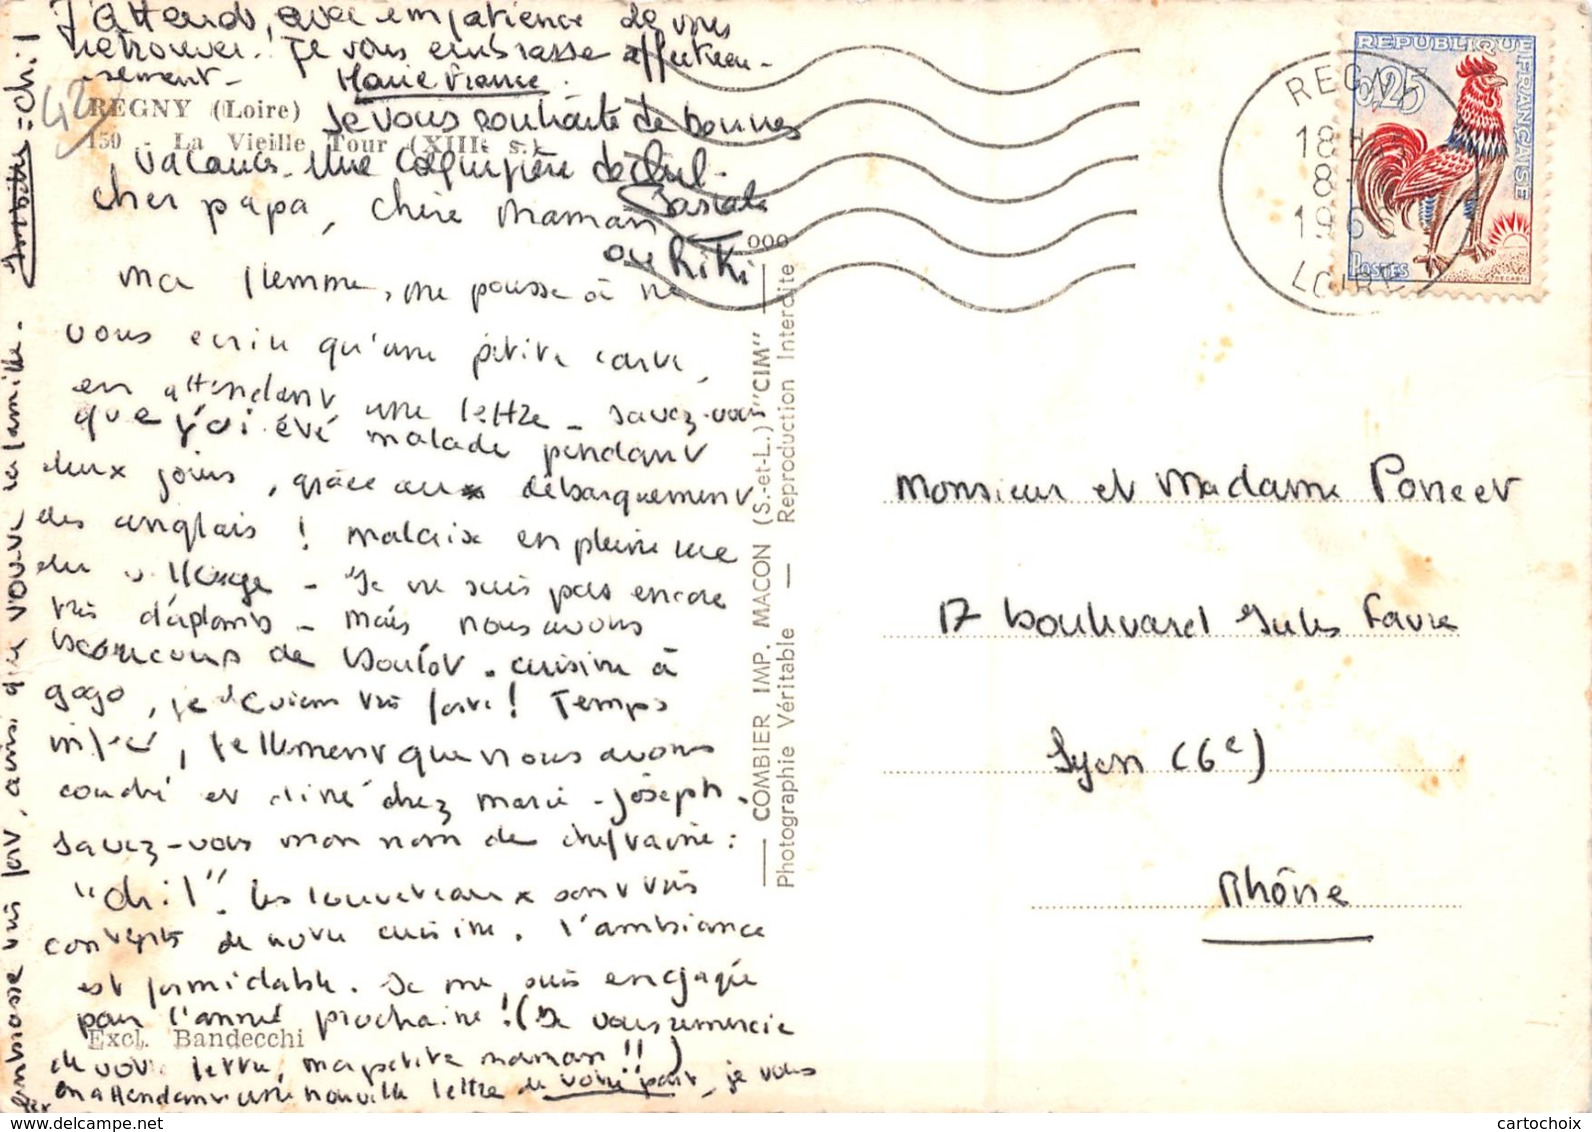 J'attends, avec impatience de vous
retrouver. Je vous embrasse affectueu-
sement -
Marie France.
REGNY (Loire)
150 - La Vieille Tour (XIIIe s.)
42
Je vous souhaite de bonnes
vacances. Une
ou Kiki
Cher papa, Chère Maman
Ma flemme, me pousse à ne
vous écrire qu'une petite carte,
en attendant une lettre - Savez-vous
que j'ai été malade pendant
deux jours, grâce aux débarquement
des anglais ! malaise en pleine rue
du village - Je ne suis pas encore
très d'aplomb - mais nous avons
beaucoup de boulot - cuisine à
gogo, je deviens très forte ! Temps
infect, tellement que nous avons
couché et diné chez Marie-Joseph.
Savez-vous mon nom de cheftaine :
"chil". Les louveteaux sont très
contents de notre cuisine. l'ambiance
est formidable. Je me suis engagée
pour l'année prochaine ! (Je vous remercie
de votre lettre, ma petite maman !!)
en attendant une nouvelle lettre de votre part, je vous
embrasse très fort, ainsi que vous-ve la famille.
= chil
Excl. Bandecchi
COMBIER IMP. MACON (S.-et-L.) "CIM"
Photographie Véritable — Reproduction Interdite
REGNY
18 H
8
196
LOIRE
REPUBLIQUE FRANÇAISE
0,25
POSTES
DECARIS
Monsieur et Madame Poncet
17 boulevard Jules Favre
Lyon (6e)
Rhône
cartochoix